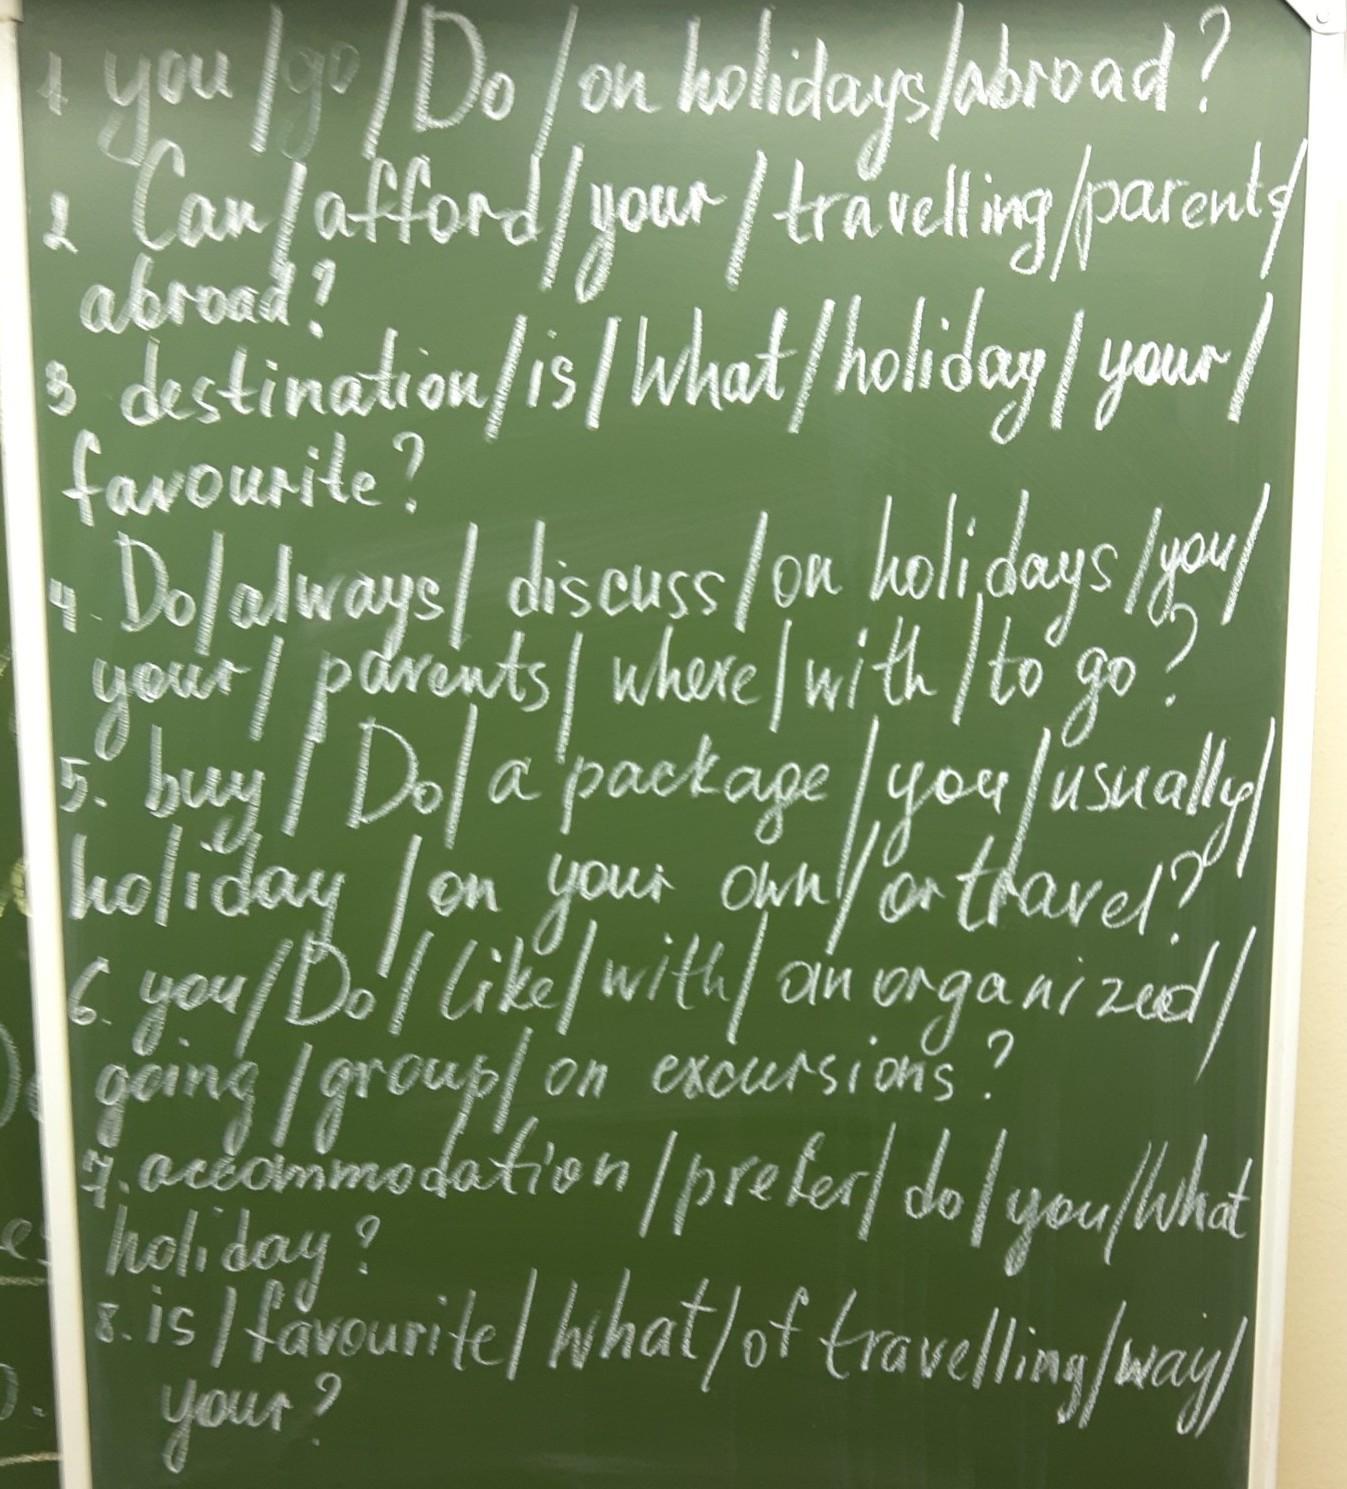 1 you / go / Do / on holidays / abroad?
2 Can / afford / your / travelling / parents /
abroad?
3 destination / is / What / holiday / your /
favourite?
4. Do / always / discuss / on holidays / you /
your / parents / where / with / to go?
5. buy / Do / a package / you / usually /
holiday / on your own / or travel?
6. you / Do / like / with / an organized /
going / group / on excursions?
7. accommodation / prefer / do / you / What
holiday?
8. is / favourite / What / of travelling / way /
your?